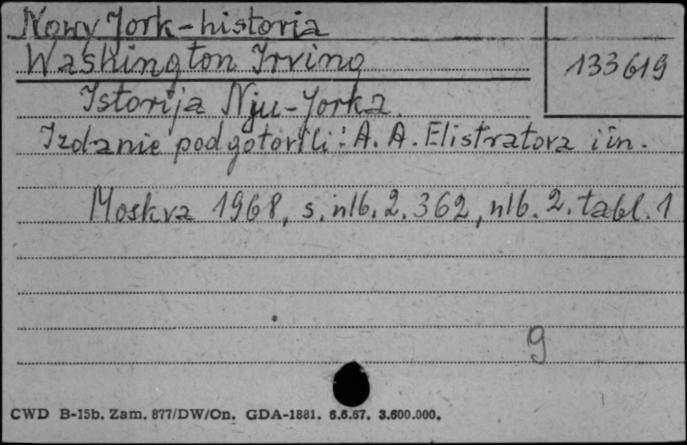 Nowy Jork-historia
Washington Irving
133619
Istorija Nju-Jorka.
Izdanie podgotovili: A. A. Elistratova i in.
Moskva 1968, s. nlb. 2. 362, nlb. 2. tabl. 1
9
CWD B-15b. Zam. 877/DW/On. GDA-1881. 6.6.67. 3.600.000.